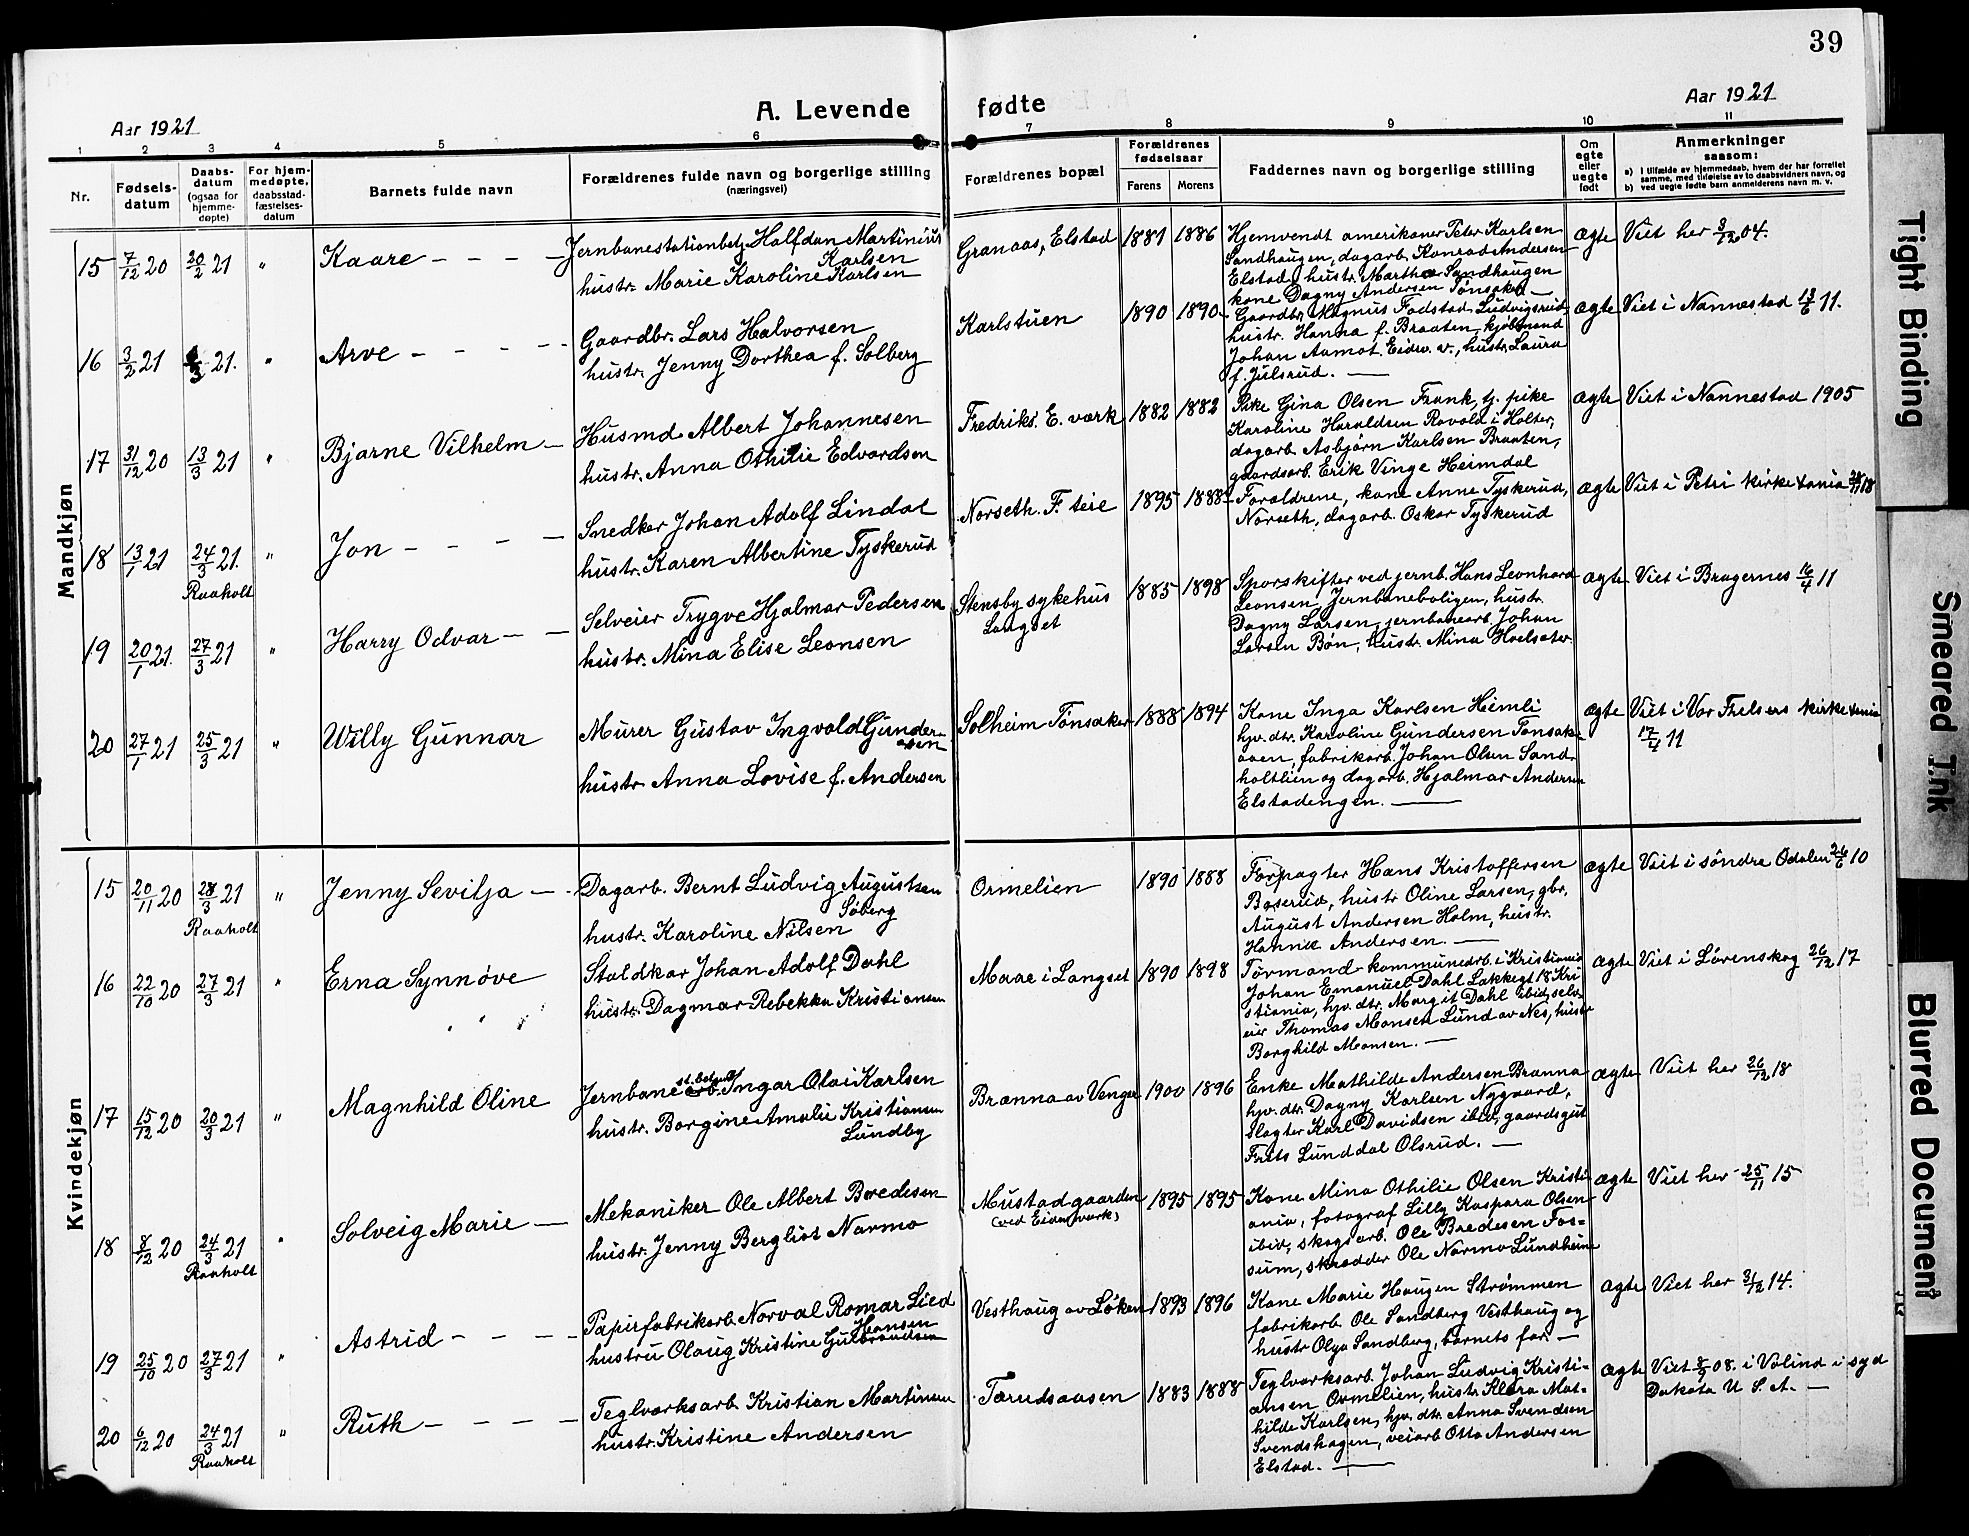 39
A. Levende fødte
Aar 1921
Aar 1921
1 2 3 4 5 6 7 8 9 10 11
Nr.
Fødsels-
datum
Daabs-
datum
(ogsaa for
hjemme-
døpte)
For hjem-
medøpte,
daabsstad-
fæstelses-
datum
Barnets fulde navn
Forældrenes fulde navn og borgerlige stilling
(næringsvei)
Forældrenes bopæl
Forældrenes
fødselsaar
Farens Morens
Faddernes navn og borgerlige stilling
Om
egte
eller
uegte
født
Anmerkninger
saasom:
a) I tilfælde av hjemmedaab, hvem der har forrettet
samme, med tilføielse av to daabsvidners navn, og
b) ved uegte fødte barn anmelderens navn m. v.
Mandkjøn
15 7/12 20 20/2 21 " Kaare - - - -
Jernbanestationbetj. Halfdan Martinius
Karlsen
hustr. Marie Karoline Karlsen
Granaas, Elstad 1881 1886
Hjemvendt amerikaner Peter Karlsen
Sandhaugen, dagarb. Konrad Andersen
Elstad, hustr. Martha Sandhaugen
kone Dagny Andersen Tönsaker -
ægte Viet her 3/12 04.
16 3/2 21 21. " Arve - - - -
Gaardbr. Lars Halvorsen
hustr. Jenny Dorthea f. Solberg
Karlstuen 1890 1890
Gaardbr. Magnus Fodstad Ludvigsrud,
hustr. Hanna f. Braaten, kjøbmand
Johan Aamot. Eidsv. v., hustr. Laura
f. Julsrud. -
ægte Viet i Nannestad 13/6 11.
17 31/12 20 13/3 21 " Bjarne Vilhelm -
Husmd. Albert Johannesen
hustr. Anna Othilie Edvardsen
Fredriks. E. værk 1882 1882
Pike Gina Olsen Frank, tj. pike
Karoline Haraldsen Ravold i Holter,
dagarb. Asbjørn Karlsen Braaten,
gaardsarb. Erik Vinge Heimdal
ægte Viet i Nannestad 1905
18 13/1 21 24/3 21. " Jon - - - -
Raaholt
Snedker Johan Adolf Lindal
hustr. Karen Albertine Tyskerud
Norseth. F. teie 1895 1888
Forældrene, kone Anne Tyskerud,
Norseth, dagarb. Oskar Tyskerud
ægte Viet i Petri kirke Xania 18
19 20/1 21. 27/3 21 " Harry Odvar - -
Selveier Trygve Hjalmar Pedersen
hustr. Mina Elise Leonsen
Stensby sykehus
Langset
1885 1898
Sporskifter ved jernb. Hans Leonhard
Leonsen Jernbaneboligen, hustr.
Dagny Larsen, jernbanearb. Johan
Larsen Bøn, hustr. Mina Hoelsæter.
ægte Viet i Bragernes 16/4 11
20 27/1 21 25/3 21 " Willy Gunnar
Murer Gustav Ingvald Gunder-
sen
hustr. Anna Lovise f. Andersen
Solheim Tönsaker 1888 1894
Kone Inga Karlsen Heimli
hjv. dtr. Karoline Gundersen Tønsak-
aaen, fabrikarb. Johan Olsen Sand-
holtlien og dagarb. Hjalmar Andersen
Elstadengen. -
ægte Viet i Vor Frelsers kirke Xania
17/4 11
Kvindekjøn
15 20/11 20 28/3 21 " Jenny Sevilja - -
Raaholt
Dagarb. Bernt Ludvig Augustsen
Søberg
hustr. Karoline Nilsen
Ormelien 1890 1888
Forpagter Hans Kristoffersen
Baserud, hustr. Oline Larsen, gbr.
August Andersen Holm, hustr.
Hanna Andersen. -
ægte Viet i söndre Odalen 26/6 10
16 22/10 20 27/3 21 " Erna Synnøve
Staldkar Johan Adolf Dahl
hustr. Dagmar Rebekka Kristiansen
Maae i Langset 1890 1898
Formand kommunearb. i Kristiania
Johan Emanuel Dahl Lakkegt 18 Kri
stiania, hjv. dtr. Margit Dahl ibid, selv
eier Thomas Monsen Lund av Nes, hustr
Borghild Monsen. -
ægte Viet i Lörenskog 26/12 17
17 15/12 20 20/3 21 " Magnhild Oline
Jernbane st. betj. Ingar Olai Karlsen
hustr. Borgine Amalie Kristiansen
Lundby
Brænna av Venger 1900 1896
Enke Mathilde Andersen Brænna
hjv. dtr. Dagny Karlsen Nygaard,
slagter Karl Davidsen ibid, gaardsgut
Frits Lunddal Olsrud. -
ægte Viet her 26/12 18
18 8/12 20 24/3 21 " Solveig Marie -
Raaholt
Mekaniker Ole Albert Bredesen
hustr. Jenny Bergliot Narmo
Mustadgaarden
(ved Eidsv. værk)
1895 1895
Kone Mina Othilie Olsen Kristi
ania, fotograf Lilly Kaspara Olsen
ibid, skogsarb. Ole Bredesen Fos-
sum, skrædder Ole Narmo Lundheim
ægte Viet her 25/11 15
19 25/10 20 27/3 21 " Astrid - - - -
Papirfabrikarb. Norval Romar Lied
Hansen
hustru Olaug Kristine Gulbrandsen
Vesthaug av Løken 1893 1896
Kone Marie Haugen Strømmen
fabrikarb. Ole Sandberg Vesthaug og
hustr. Olga Sandberg, barnets far. -
ægte Viet her 31/12 14.
20 6/12 20 24/3 21 " Ruth - - - -
Raaholt
Teglværksarb. Kristian Martinsen
hustr. Kristine Andersen
Tærudsaasen 1883 1888
Teglværksarb. Johan Ludvig Kristi-
ansen Ormelien, hustr. Klara Mat-
hilde Karlsen, hjv. dtr. Anna Svendsen
Svendshagen, veiarb. Otto Andersen
Elstad. -
ægte Viet 08. i Volind i syd
Dakota U. S. A. -
Tight Binding
Smeared Ink
Blurred Document